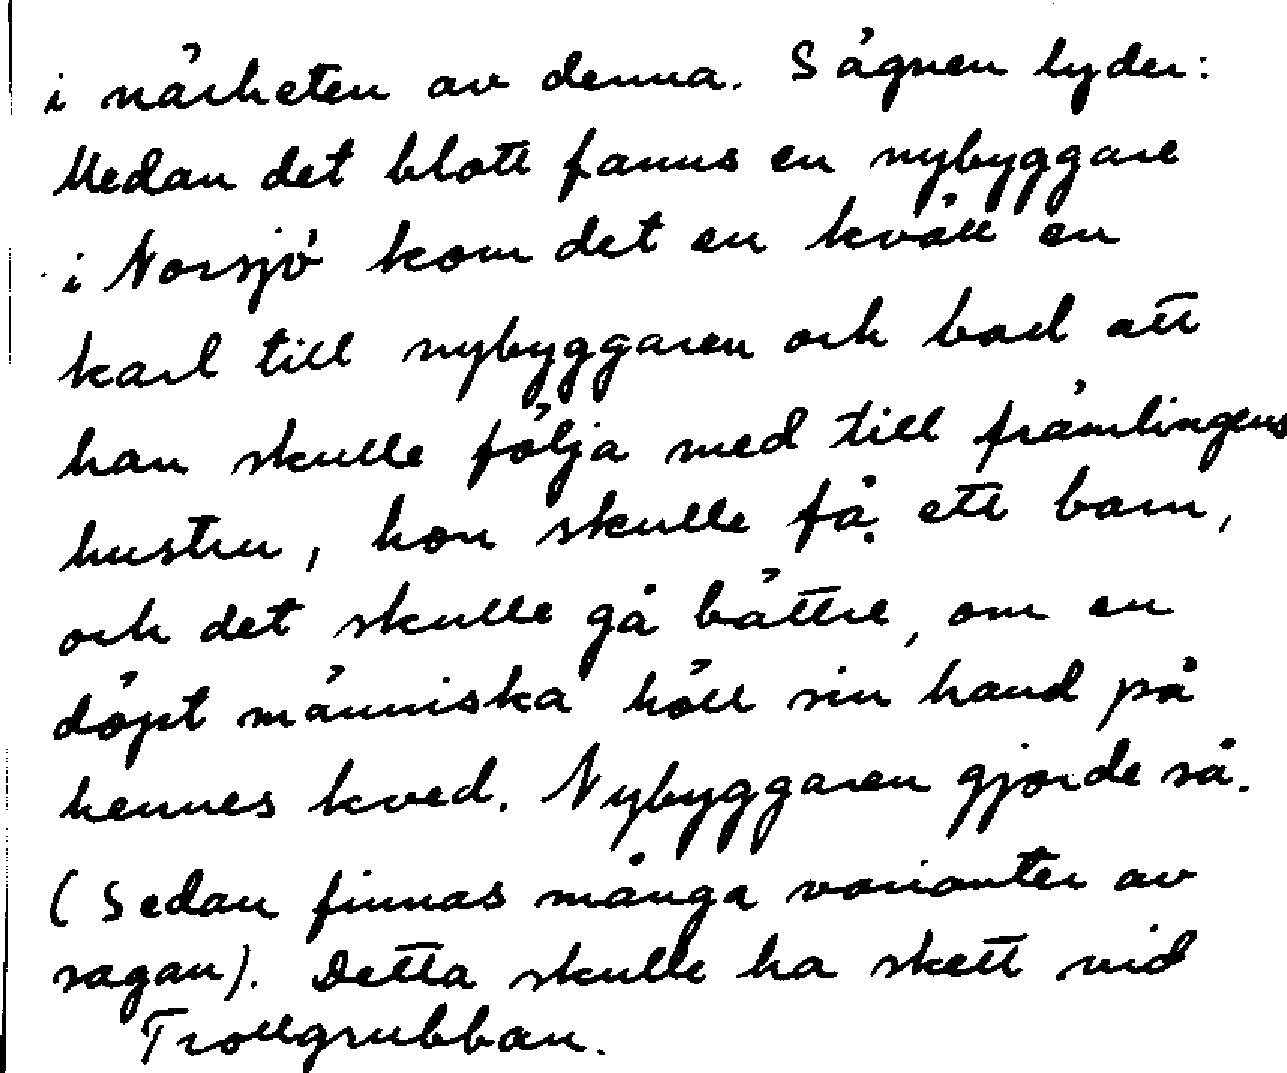 i närheten av denna. Sägnen lyder:
Medan det blott fanns en nybyggare
i Norsjö kom det en kväll en
karl till nybyggaren och bad att
han skulle följa med till främlingens
hustru, hon skulle få ett barn,
och det skulle gå bättre, om en
döpt människa höll sin hand på
hennes kved. Nybyggaren gjorde så.
(Sedan finnas många varianter av
sagan). Detta skulle ha skett vid
Trollgrubban.